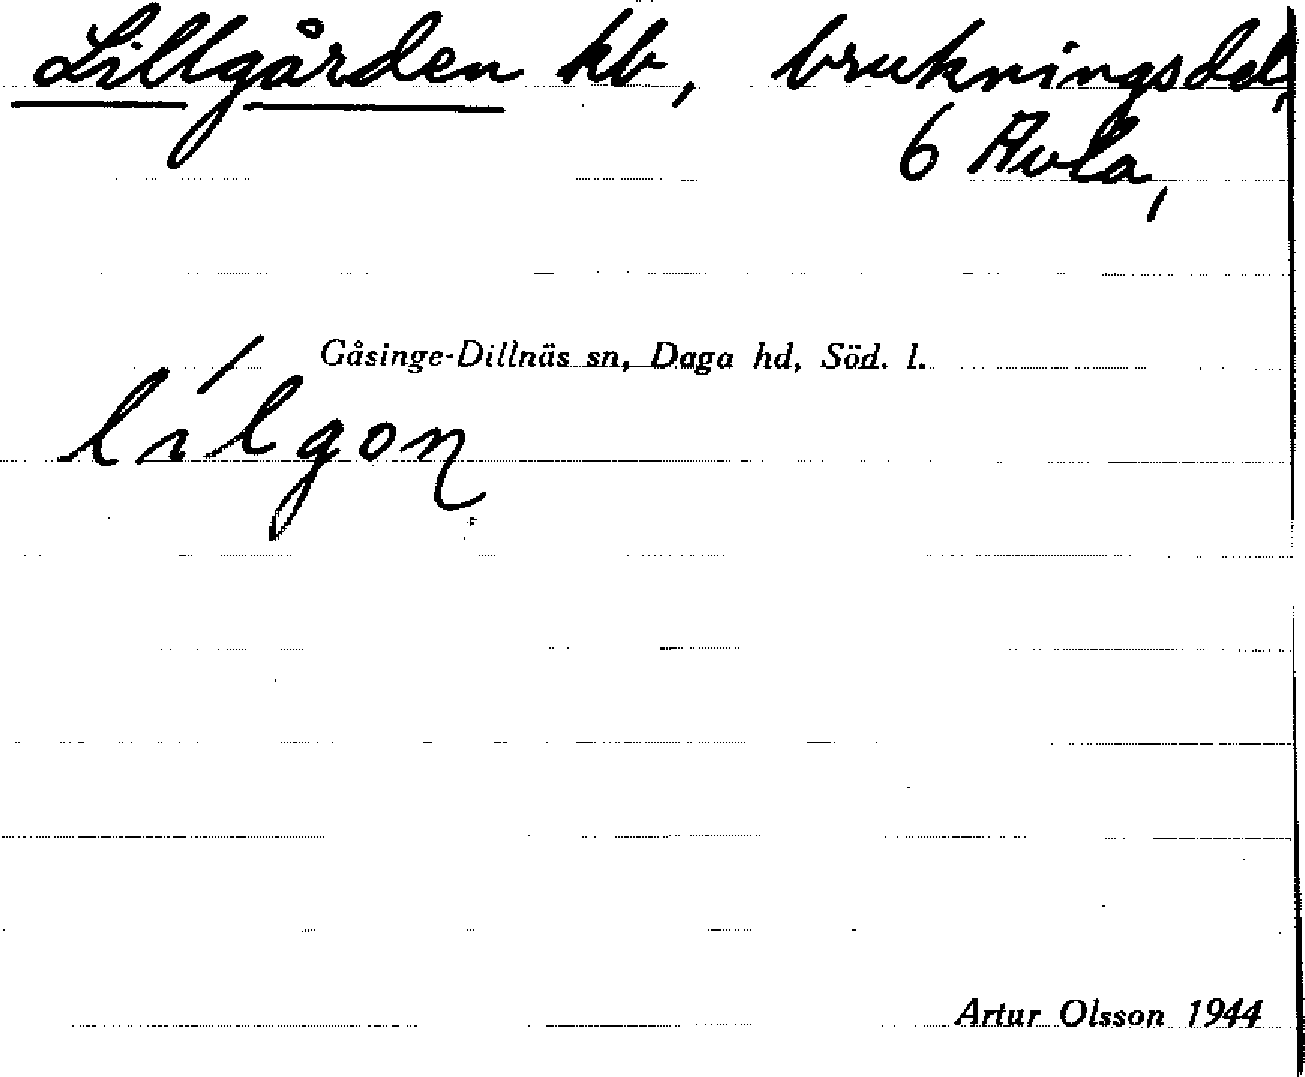 Lillgården kb, brukningsdel,
6 Avla,
Gåsinge-Dillnäs sn, Daga hd, Söd. l.
lilgon
Artur Olsson 1944